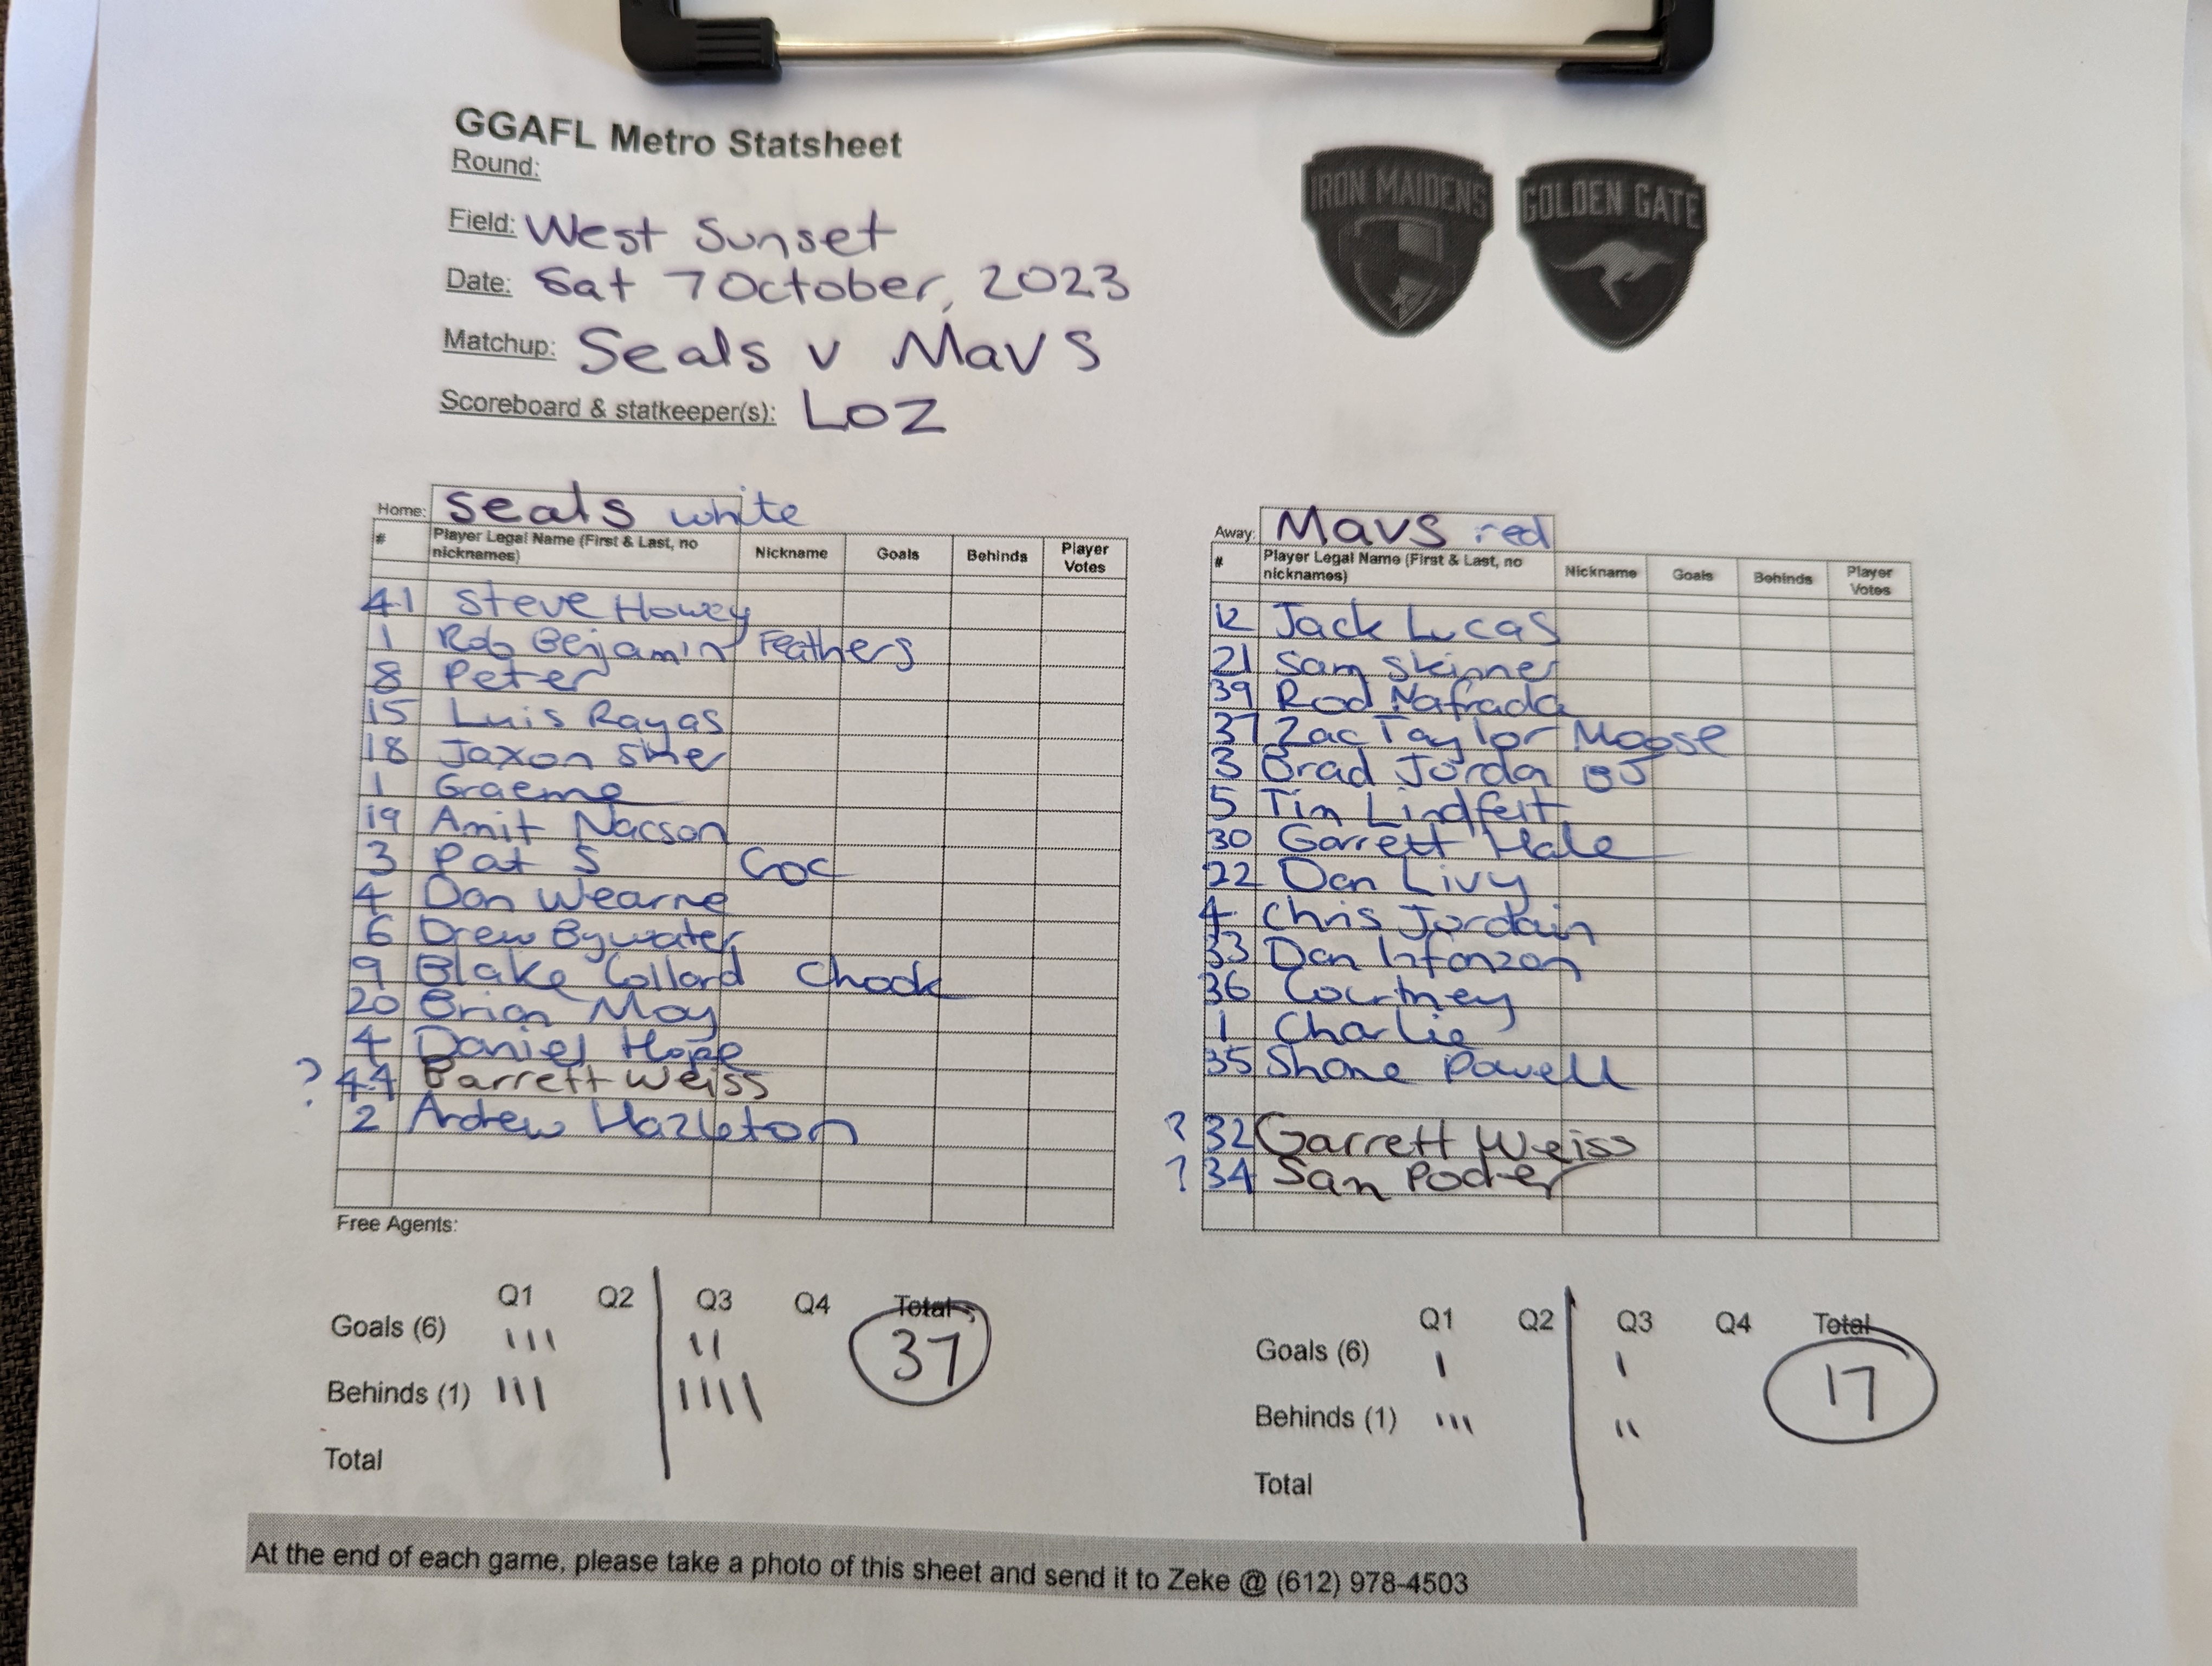 GGAFL Metro Statsheet
Round:
IRON MAIDENS
GOLDEN GATE
Field: West Sunset
Date: Sat 7 October, 2023
Matchup: Seals v Mavs
Scoreboard & statkeeper(s): LOZ
Home: Seals white
# Player Legal Name (First & Last, no nicknames) Nickname Goals Behinds Player Votes
41 Steve Howey
1 Rob Benjamin Feathers
8 Peter
15 Luis Rayas
18 Jaxon Sher
1 Graeme
19 Amit Nacson
3 Pat S Coc
4 Don Wearne
6 Drew Bywater
9 Blake Collard Chook
20 Brian Moy
4 Daniel Hope
? 44 Barrett Weiss
2 Andrew Hazleton
Free Agents:
Away: Mavs red
# Player Legal Name (First & Last, no nicknames) Nickname Goals Behinds Player Votes
12 Jack Lucas
21 Sam Skinner
39 Rod Nafrada
37 Zac Taylor Moose
3 Brad Jorda BJ
5 Tim Lindfelt
30 Garrett Hale
22 Dan Livy
4 Chris Jordain
33 Dan Infonzon
36 Courtney
1 Charlie
35 Shane Powell
? 32 Garrett Weiss
? 34 Sam
Q1 Q2 Q3 Q4 Total
Goals (6) III II 37
Behinds (1) III IIII
Total
Q1 Q2 Q3 Q4 Total
Goals (6) I I 17
Behinds (1) III II
Total
At the end of each game, please take a photo of this sheet and send it to Zeke @ (612) 978-4503